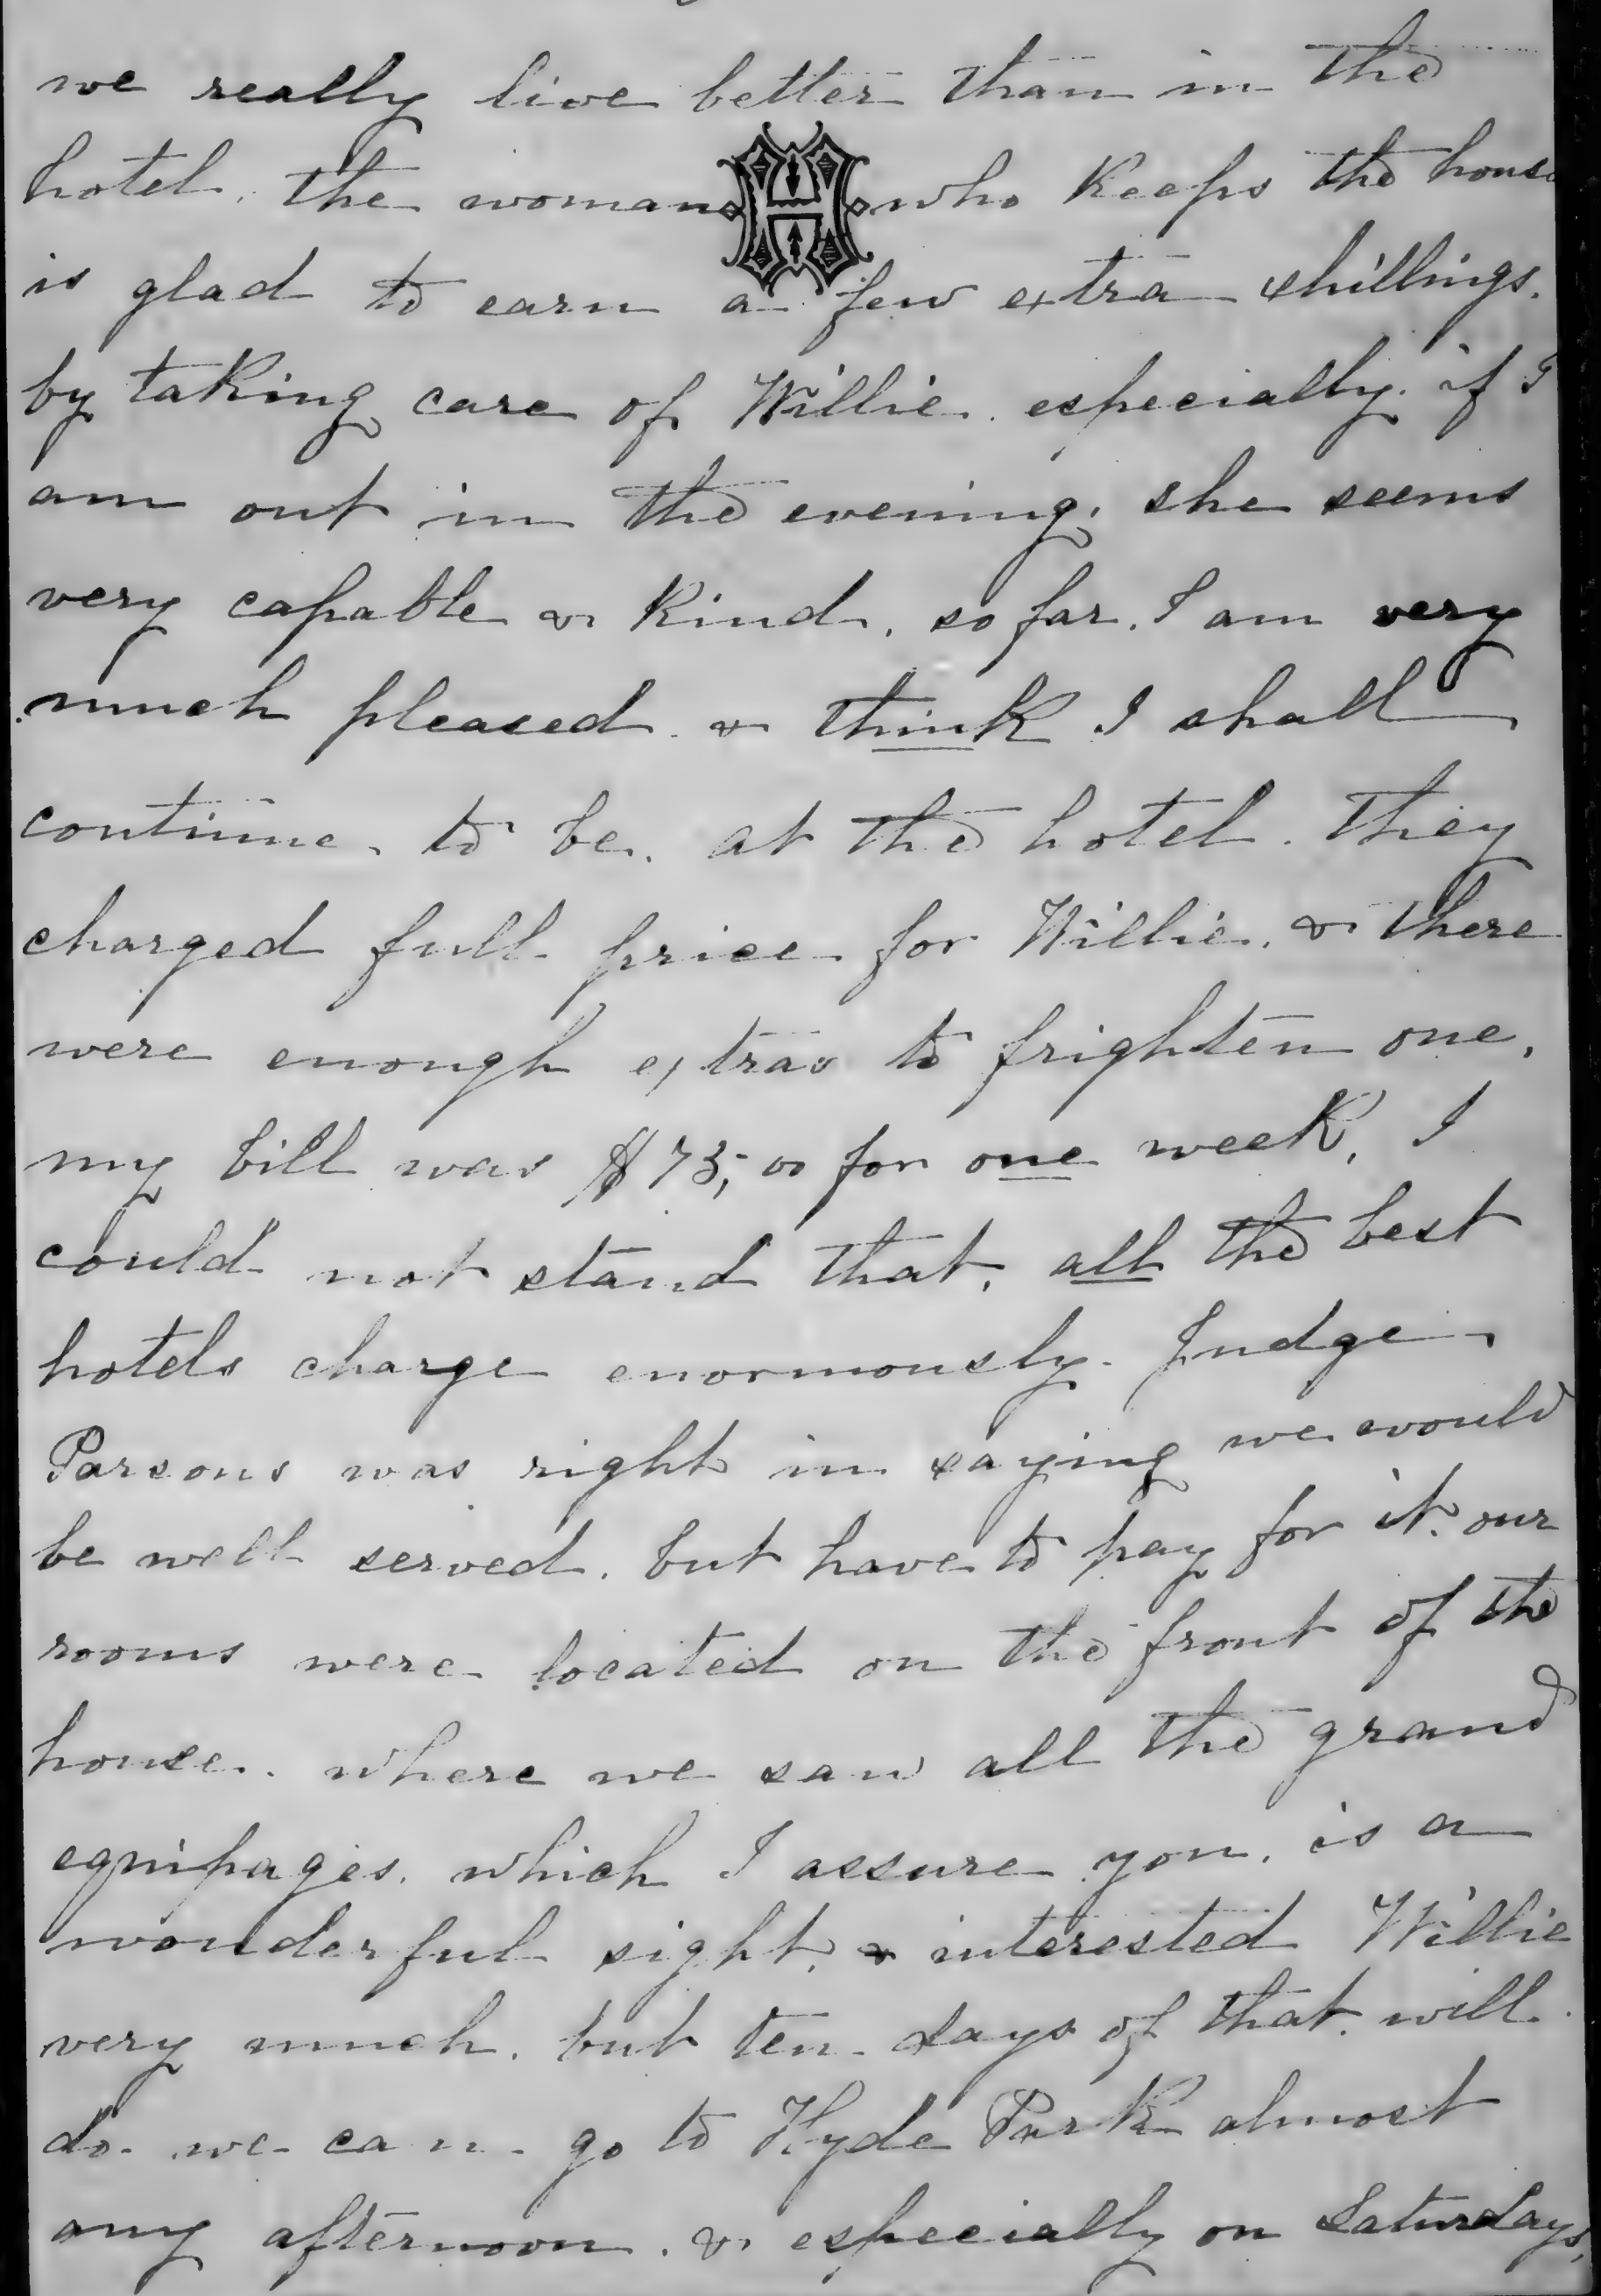 we really live better than in the
hotel. the woman H who keeps the house
is glad to earn a few extra shillings.
by taking care of Willie. especially. if I
am out in the evening, she seems
very capable & kind. so far. I am very
much pleased. & think I shall
continue. to be. at the hotel. they
charged full price for Willie. & there
were enough extras to frighten one,
my bill was $73,00 for one week, I
could not stand that, all the best
hotels charge enormously. Judge
Parsons was right in saying we would
be well served. but have to pay for it. our
rooms were located on the front of the
house. where we saw all the grand
equipages. which I assure you. is a
wonderful sight, & interested Willie
very much. but ten days of that will
do. we can go to Hyde Park almost
any afternoon. & especially on Saturdays,